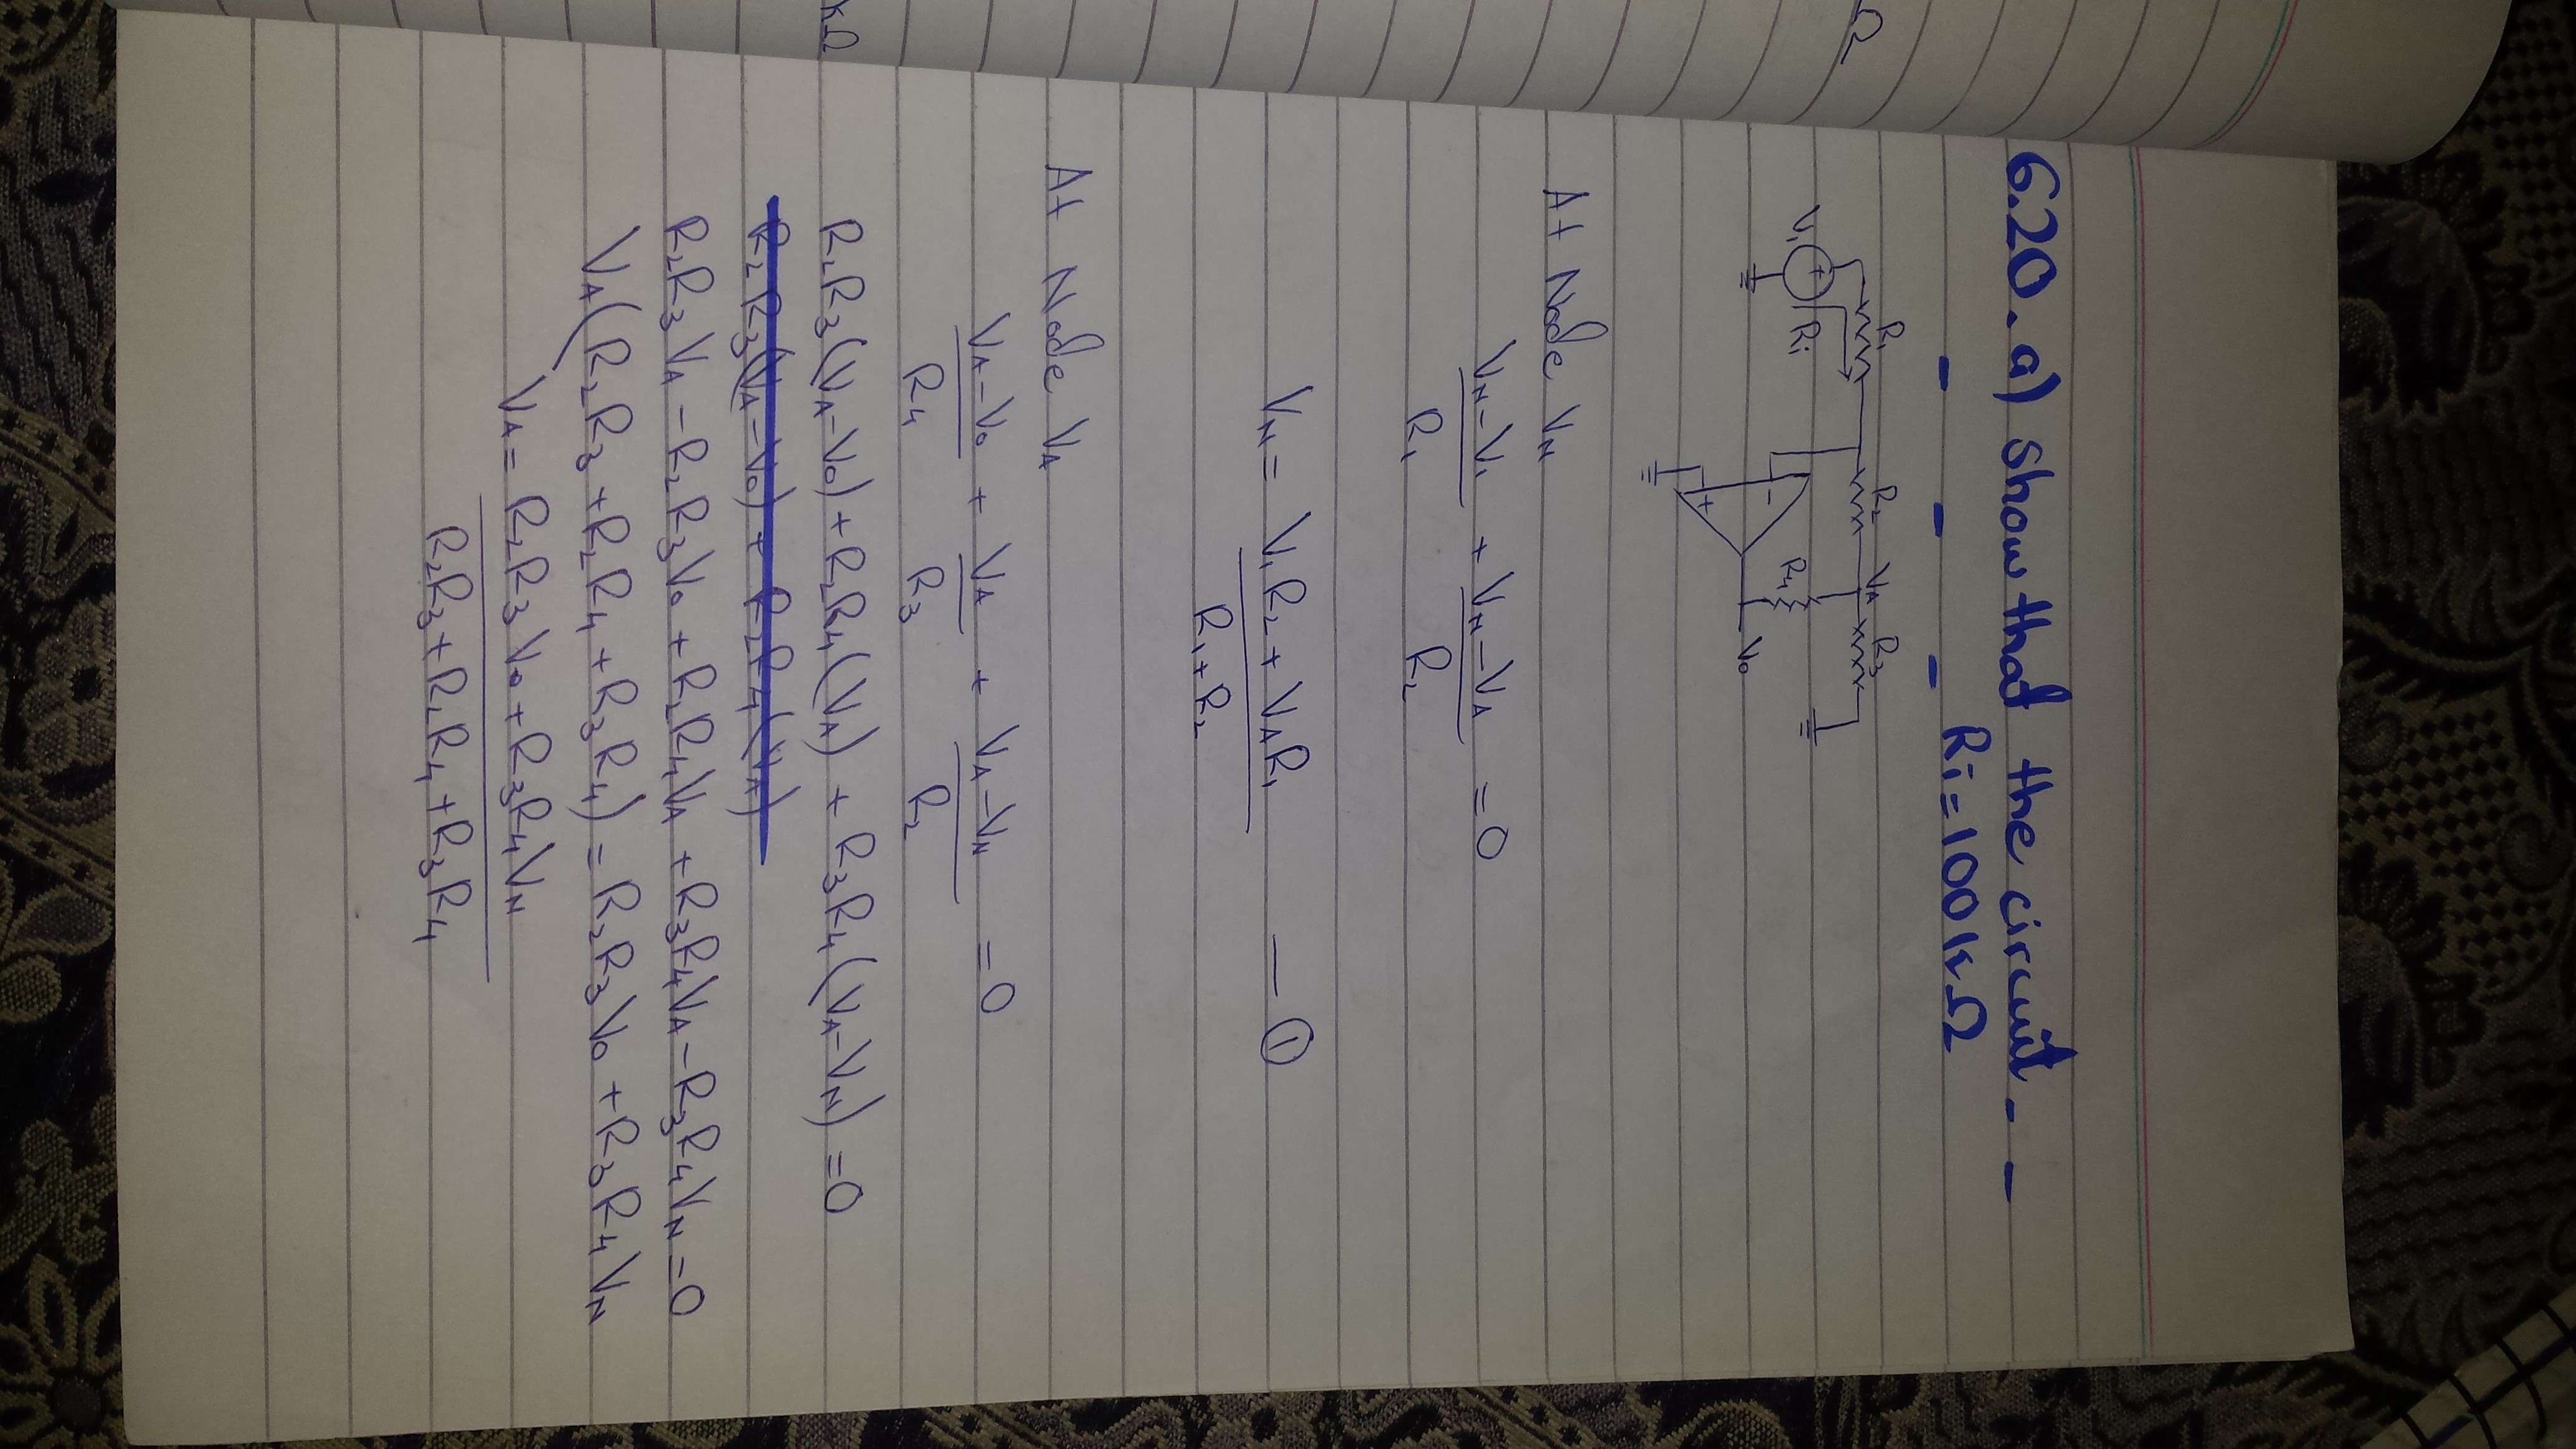 kΩ
Ω
6.20. a) Show that the circuit - -
- - - Ri = 100kΩ
R₁ R₂ VA R₃
V₁ + Ri - + R₄ V₀
At Node VN
VN-V₁/R₁ + VN-VA/R₂ = 0
VN = V₁R₂ + VAR₁/R₁+R₂ — ①
At Node VA
VA-V₀/R₄ + VA/R₃ + VA-VN/R₂ = 0
R₂R₃(VA-V₀) + R₂R₄(VA) + R₃R₄(VA-VN) = 0
R₂R₃(VA-V₀) + R₂R₄(VA)
R₂R₃VA - R₂R₃V₀ + R₂R₄VA + R₃R₄VA - R₃R₄VN = 0
VA(R₂R₃ + R₂R₄ + R₃R₄) = R₂R₃V₀ + R₃R₄VN
VA = R₂R₃V₀ + R₃R₄VN/R₂R₃+R₂R₄+R₃R₄